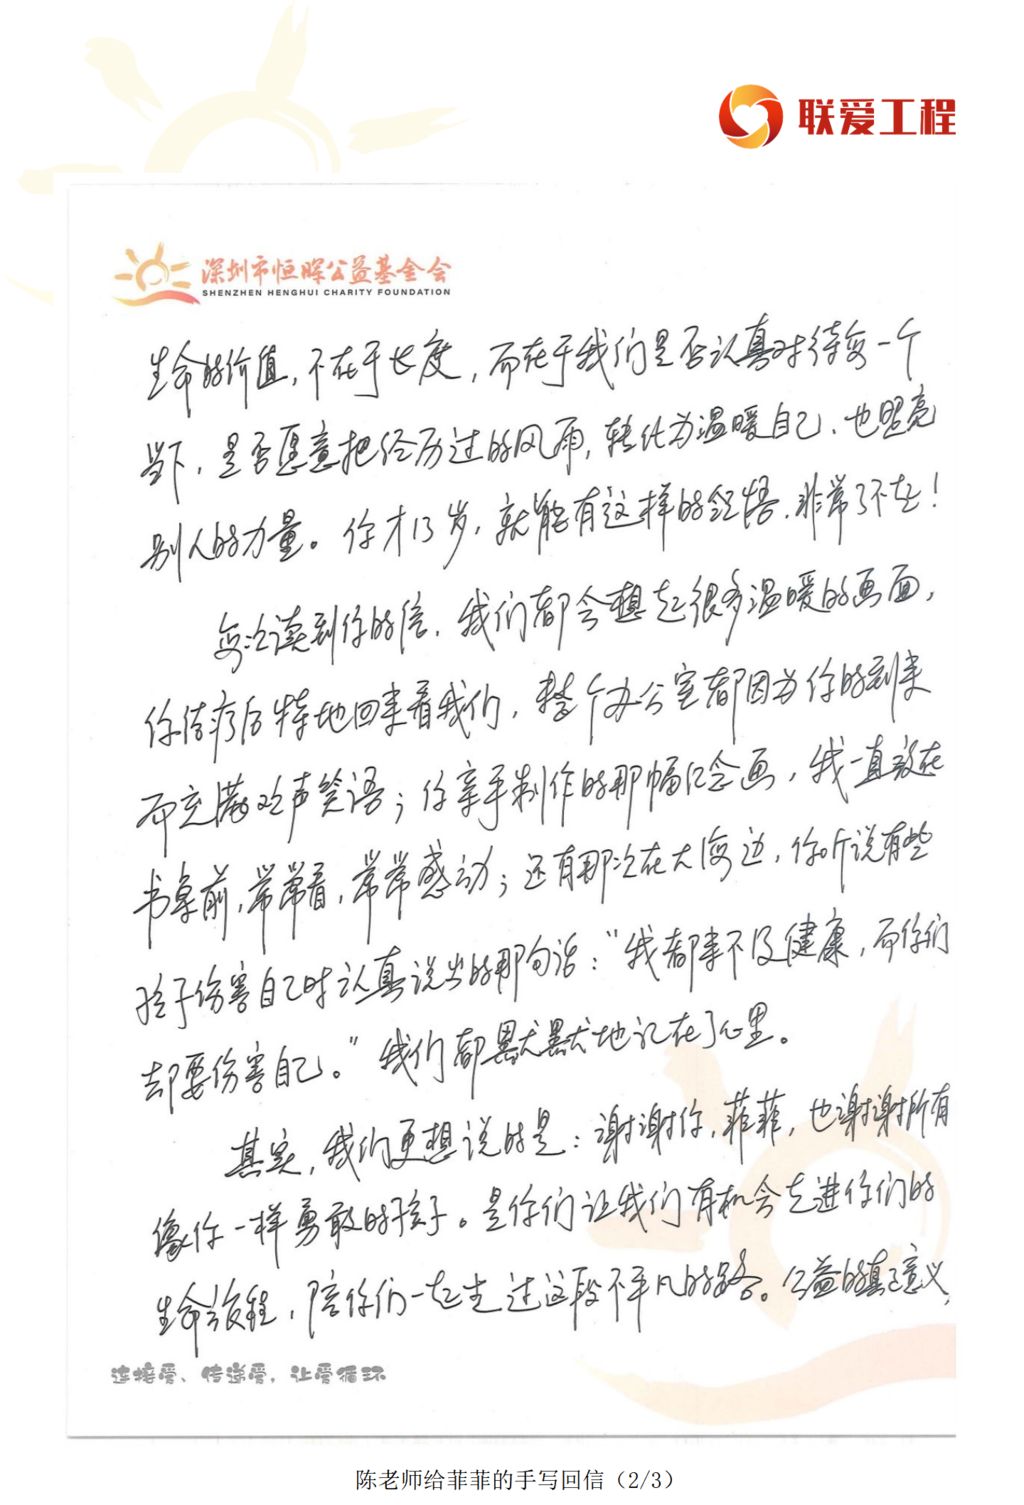 联爱工程
深圳市恒晖公益基金会
SHENZHEN HENGHUI CHARITY FOUNDATION
生命的价值，不在于长度，而在于我们是否认真对待每一个
当下，是否愿意把经历过的风雨，转化为温暖自己、也照亮
别人的力量。你才13岁，就能有这样的领悟，非常了不起！
每次读到你的信，我们都会想起很多温暖的画面，
你结疗后特地回来看我们，整个办公室都因为你的到来
而充满欢声笑语；你亲手制作的那幅纪念画，我一直放在
书桌前，常常看，常常感动；还有那次在大海边，你听说有些
孩子伤害自己时认真说出的那句话：“我都来不及健康，而你们
却要伤害自己。”我们都默默地记在了心里。
其实，我们更想说的是：谢谢你，菲菲，也谢谢所有
像你一样勇敢的孩子。是你们让我们有机会走进你们的
生命旅程，陪你们一起走过这段不平凡的路。公益的真正意义，
连接爱、传递爱，让爱循环
陈老师给菲菲的手写回信（2/3）